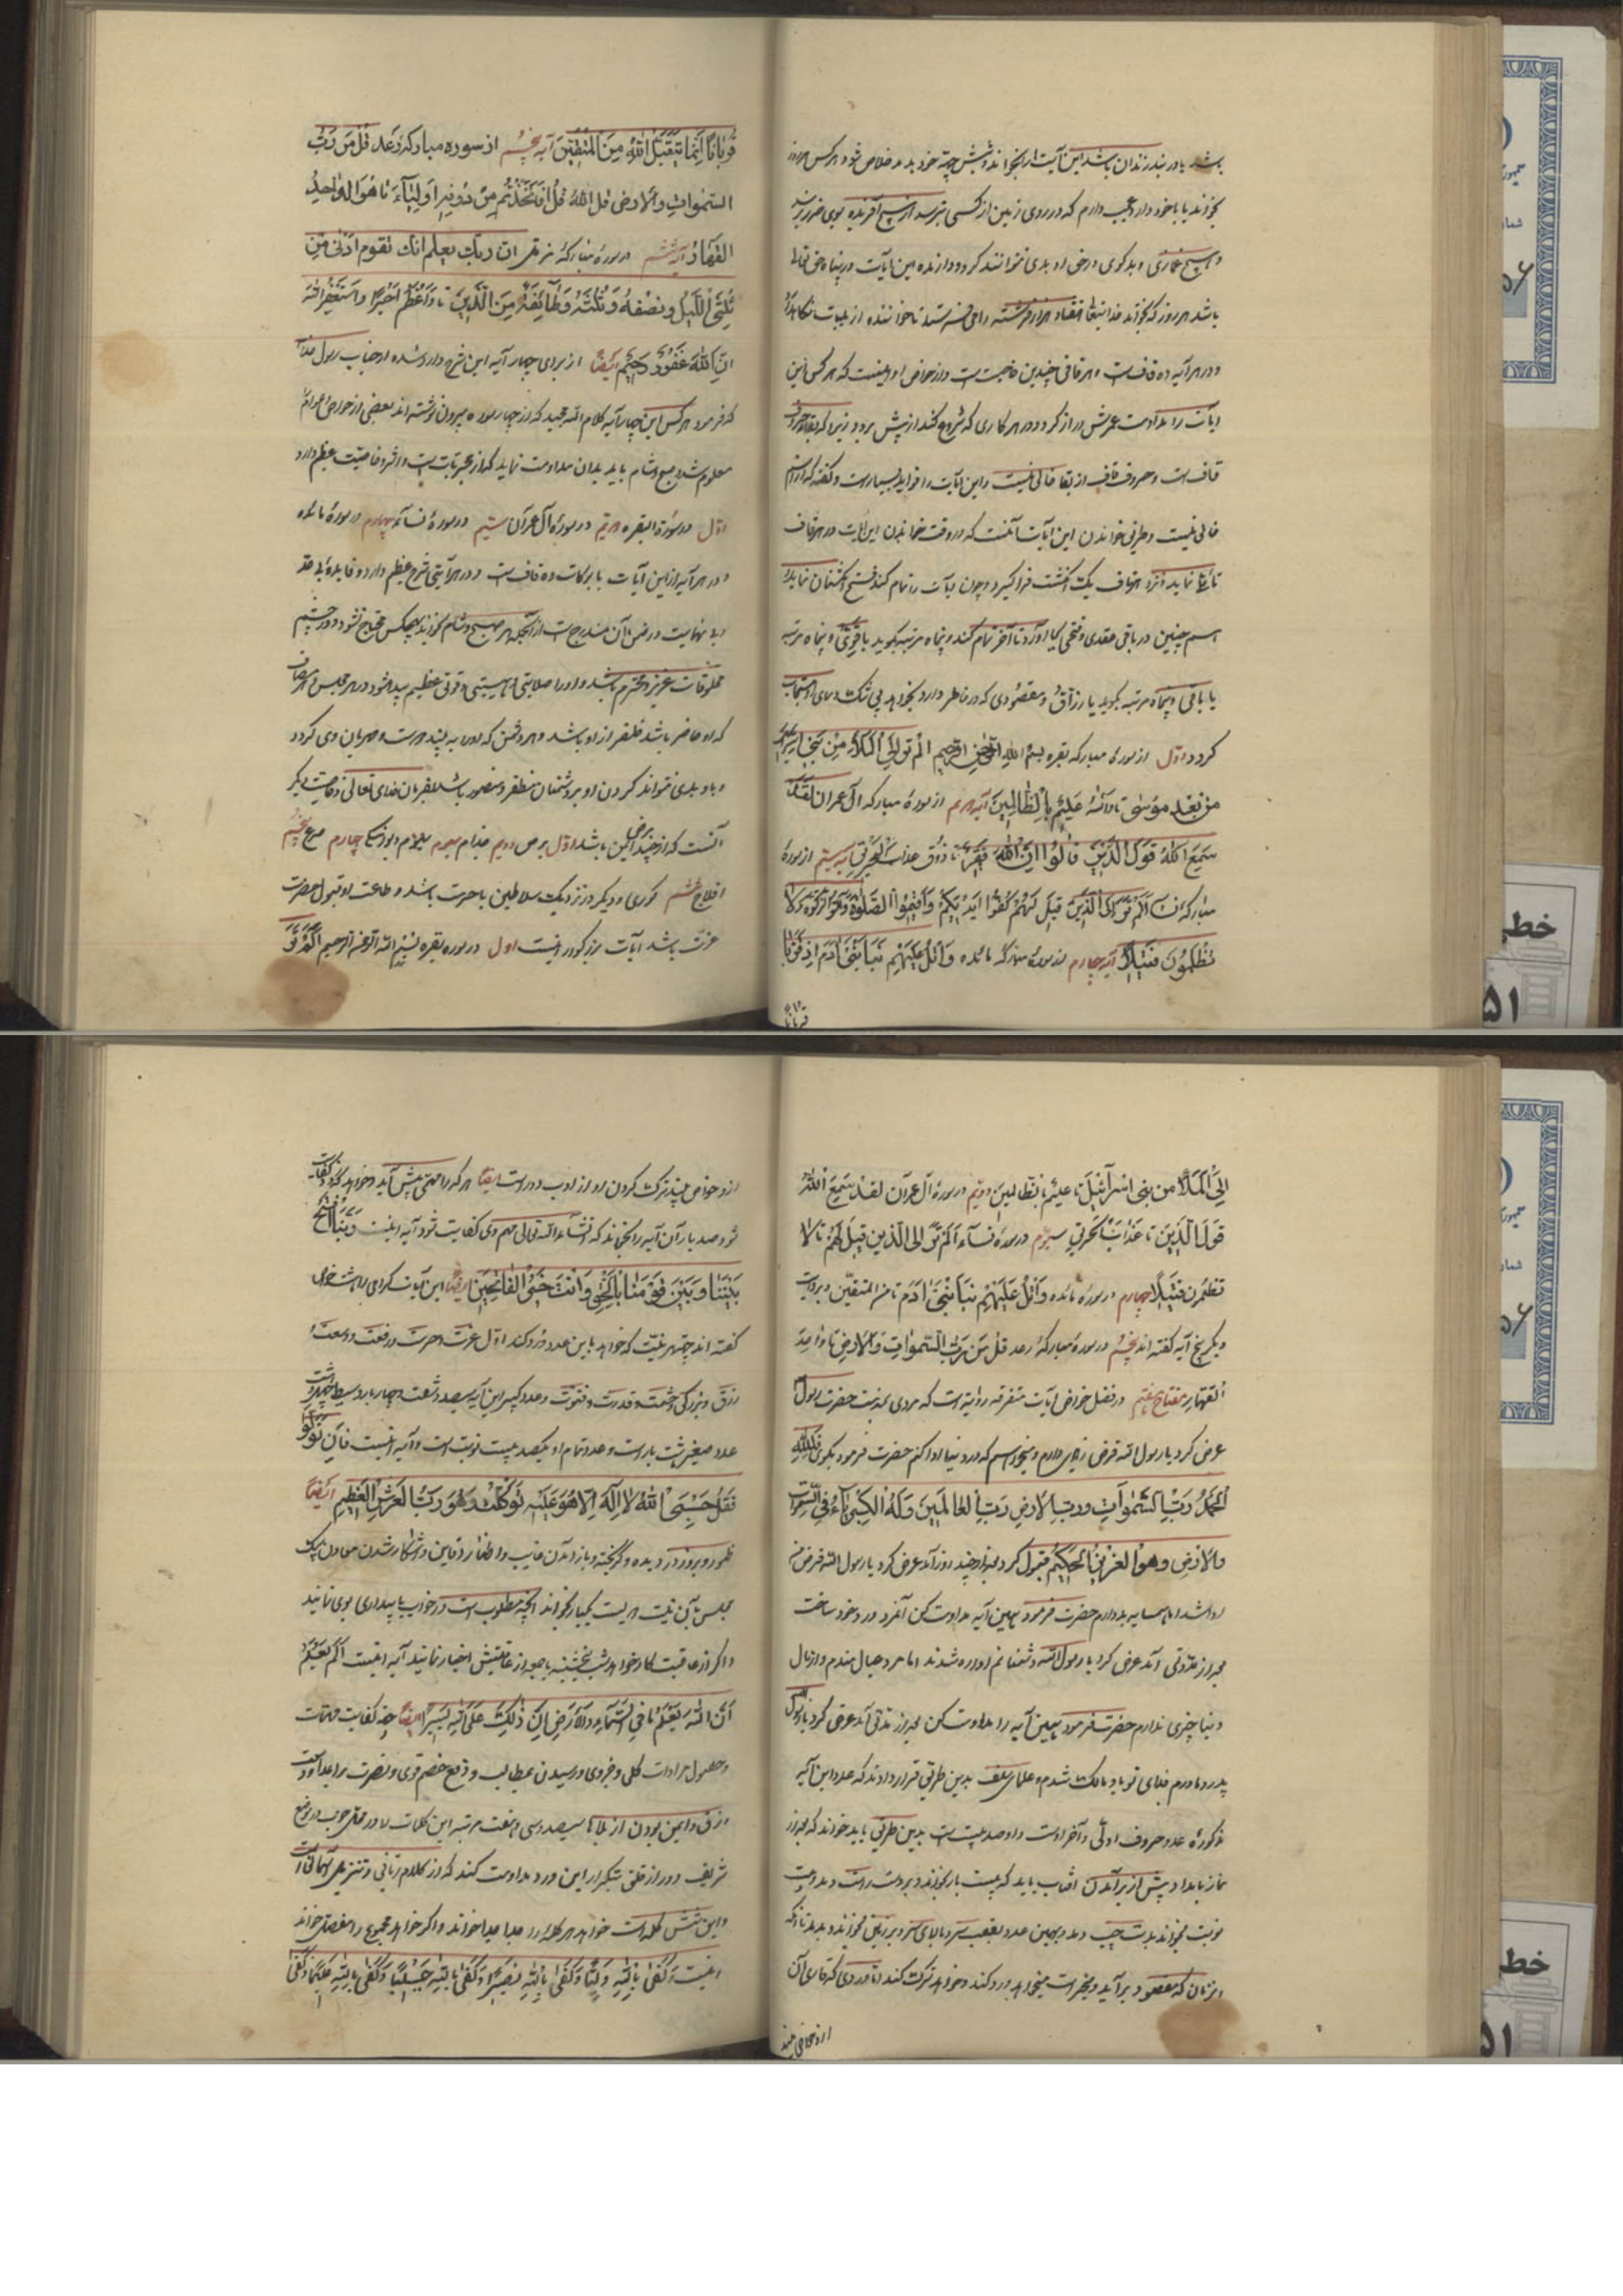 باشد یا در بند زندان باشد این آیت را بخواند و شش جهة خود بدمد خلاص شود و هر کس هر روز
بخواند یا با خود دارد عجب دارم که در روی زمین از کسی بترسد از هیچ آفریده بوی ضرر نرسد
و هیچ غمازی و بدگوی در حق او بدی نتوانند کرد و دارنده این آیات در پناه حق تعالی
باشد هر روز که بخواند خدایتعالی هفتاد هزار فرشته را می فرستد تا خواننده از بلیات نگاهدارند
و در هر آیه ده قاف است و هر قافی چندین خاصیت است و از خواص او اینست که هر کس این
آیات را مداومت عمرش دراز گردد و در هر کاری که شروع کند از پیش برود زیرا که
قاف است و حروف قاف از بقا خالی نیست و این آیات را فواید بسیار است و گفته که از آن
خالی نیست و طریق خواندن این آیات آنست که در وقت خواندن این آیات در هر قاف
تأنی نماید و نزد هر قاف یک انگشت فرا گیرد و چون آیت را تمام کند فتح انگشتان نماید
یا باقی و پنجاه مرتبه بگوید یا رزاق و مقصودی که در خاطر دارد بخواهد بی شک دعای او مستجاب
گردد اول از سورهٔ مبارکه بقره بسم الله الرحمن الرحیم الم تر الی الملاء من بنی اسرائیل
من بعد موسی تا والله علیم بالظالمین آیه دویم از سورهٔ مبارکه آل عمران لقد
سمع الله قول الذین قالوا ان الله فقیر تا ذوقوا عذاب الحریق آیه سیم از سورهٔ
مبارکه نساء الم تر الی الذین قیل لهم کفوا ایدیکم واقیموا الصلوة وآتوا الزکوة تا ولا
تظلمون فتیلا آیه چهارم از سورهٔ مبارکه مائده واتل علیهم نبأ ابنی آدم اذ قربا
قربانا
قربانا انما یتقبل الله من المتقین آیه پنجم از سوره مبارکهٔ رعد قل من رب
السموات والارض قل الله قل افاتخذتم من دونه اولیاء تا هو الواحد
القهار آیه ششم در سورهٔ مبارکهٔ مزمل ان ربک یعلم انک تقوم ادنی من
ثلثی اللیل ونصفه وثلثه وطائفة من الذین تا واعظم اجرا واستغفروا الله
ان الله غفور رحیم ایضا از برای چهار آیه این شرح وارد شده از جناب رسول خدا
که فرمود هر کس این چهار آیه کلام الله مجید که از چهار سوره بیرون نوشته اند بعضی از خواص
معلوم شد صبح و شام باید بدان مداومت نماید که از مجربات است و اثر و خاصیت عظیم دارد
اول در سورة البقره دویم در سورهٔ آل عمران سیم در سورهٔ نساء چهارم در سورهٔ مائده
و در هر آیه از این آیات با برکات ده قاف است و در هر آیتی شرح عظیم دارد و فایدهٔ بی حد
و بی نهایت در ضمن آن مندرج است از آنجمله هر صبح و شام بخواند بهیچکس محتاج نشود و در چشم
مخلوقات عزیز و محترم باشد و او را صلابتی و هیبتی و قوتی عظیم پیدا شود در هر مجلس و هر مصاف
که او حاضر باشد ظفر از او باشد و هر دشمن که او را به بیند دوست و مهربان وی گردد
و با وی بدی نتواند کردن او بر دشمنان مظفر و منصور باشد بفرمان خدای تعالی و خاصیت دیگر
آنست که از چند مرض ایمن باشد اول برص دویم جذام سیوم چهارم صرع پنجم
افلاج ششم کوری و دیگر در نزدیک سلاطین با حرمت باشد و طاعت او قبول حضرت
عزت باشد آیات مزبور اینست اول در سوره بقره بسم الله الرحمن الرحیم الم تر
الی الملأ من بنی اسرائیل تا علیم بالظالمین دویم در سورهٔ آل عمران لقد سمع الله
قول الذین تا عذاب الحریق سیوم در سورهٔ نساء الم تر الی الذین قیل لهم تا لا
تظلمون فتیلا چهارم در سورهٔ مائده واتل علیهم نبأ ابنی آدم تا من المتقین و بروایت
دیگر پنج آیه گفته اند پنجم در سورهٔ مبارکهٔ رعد قل من رب السموات والارض تا واحد
القهار مفتاح هفتم در فضل خواص آیات متفرقه روایة است که مردی بخدمت حضرت رسول
عرض کرد یا رسول الله قرض زیاد دارم و میخواهم که در دنیا ادا کنم حضرت فرمود بگوی فلله
الحمد رب السموات ورب الارض رب العالمین وله الکبریاء فی السموات
والارض وهو العزیز الحکیم قبول کرد بعد از چند روز آمد عرض کرد یا رسول الله قرض من
ادا شد اما همسایه بد دارم حضرت فرمود بهمین آیه مداومت کن آنمرد ورد خود ساخت
بعد از مدتی آمد عرض کرد یا رسول الله دشمنانم آواره شدند اما مرد عیال مندم و از مال
دنیا چیزی ندارم حضرت فرمود همین آیه را مداومت کن بعد از مدتی آمد عرض کرد یا رسول الله
پدر و مادرم فدای تو باد مالک شدم و علمای سلف بدین طریق قرار دادند که عدد این آیه
مذکوره عدد حروف اولی و آخر اوست و او صد بیست است بدین طریق باید خواند که بعد از
نماز بامداد پیش از برآمدن آفتاب باید که بیست بار بخواند و بر دست راست دمد و بیست
نوبت بخواند بدست چپ دمد و بهمین عدد بعقب سر و بالای سر و بر زمین بخواند و بدمد تا آنکه
هر زمان که مقصود برآید و بخیر است میخواهد ورد کند و خواهد ترک کند اما وردی که قاری آن
از و خواص چند
از و خواص چند ترک کردن او از ادب دور است ایضا هر که را مهمی پیش آید و خواهد که زود کفایت
شود صد بار آن آیه را بخواند که انشاء الله تعالی مهم وی کفایت شود آیه اینست ربنا افتح
بیننا وبین قومنا بالحق وانت خیر الفاتحین ایضا این آیات کرامی را
گفته اند چه بهر نیت که خواهد باین عدد ورد کند اول عزت و حرمت و رفعت و وسعت
رزق و بزرگی و حشمت و قدرت و فتوت و عدد کبیر این آیه سیصد و شصت و چهار بار وسیط
عدد صغیر هشت بار است و عدد تمام او یکصد بیست نوبت است و آیه اینست فان تولوا
فقل حسبی الله لا اله الا هو علیه توکلت وهو رب العرش العظیم ایضا
ظهور و بروز دزدیده و گریخته و باز آمدن غایب و اظهار دفاین و آشکار شدن معادن
مجلس بآن نیت دویست یکبار بخواند آنچه مطلوب است در خواب یا بیداری بوی نمایند
و اگر از عاقبت کار خواهد شب پنجشنبه یا جمعه از عاقبتش اخبار نمایند آیه اینست الم تعلم
ان الله یعلم ما فی السماء والارض ان ذلک علی الله یسیر ایضا جهة کفایت مهمات
و حصول مرادات کلی و جزوی و رسیدن بمطالب و دفع خصم قوی و نصرت بر اعدا و وسعت
رزق و ایمن بودن از بلاها سیصد و سی و هفت مرتبه این کلمات را در محل خوب در موضع
شریف و دور از خلق بتکرار این ورد مداومت کند که از کلام ربانی و تنزیل آسمانی است
و این شش کلمه است خواهد هر کلمه را جدا جدا خواند و اگر خواهد مجموع را مفصل خواند
اینست وکفی بالله ولیا وکفی بالله نصیرا وکفی بالله حسیبا وکفی بالله علیما وکفی
خطی
۵۱
خطی
۵۱